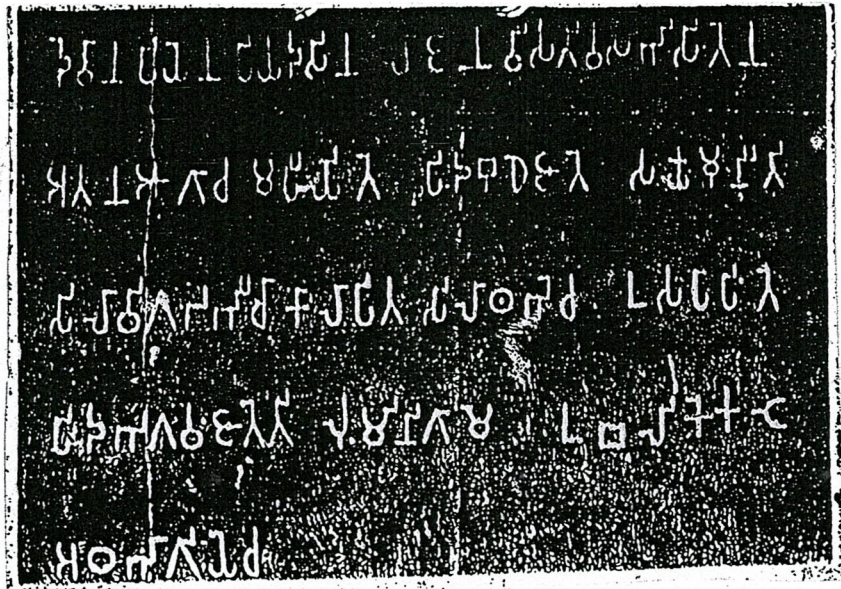 𑀤𑁂𑀯𑀸𑀦𑀧𑀺𑀬𑁂𑀦 𑀧𑀺𑀬𑀤𑀲𑀺𑀦 𑀮𑀸𑀚𑀺𑀦 𑀯𑀻𑀲𑀢𑀺𑀯𑀲𑀸𑀪𑀺𑀲𑀺𑀢𑁂𑀦
𑀅𑀢𑀦 𑀆𑀕𑀸𑀘 𑀫𑀳𑀻𑀬𑀺𑀢𑁂 𑀳𑀺𑀤 𑀩𑀼𑀥𑁂 𑀚𑀸𑀢𑁂 𑀲𑀓𑁆𑀬𑀫𑀼𑀦𑀻𑀢𑀺
𑀲𑀺𑀮𑀸 𑀯𑀺𑀕𑀟𑀪𑀻𑀘𑀸 𑀓𑀸𑀮𑀸𑀧𑀺𑀢 𑀲𑀺𑀮𑀸𑀣𑀪𑁂𑀘 𑀉𑀲𑀧𑀸𑀧𑀺𑀢𑁂
𑀳𑀺𑀤 𑀪𑀕𑀯𑀁 𑀚𑀸𑀢𑁂𑀢𑀺 𑀮𑀼𑀁𑀫𑀺𑀦𑀺 𑀕𑀸𑀫𑁂 𑀉𑀩𑀮𑀺𑀓𑁂 𑀓𑀝𑁂
𑀅𑀞𑀪𑀸𑀕𑀺𑀬𑁂 𑀘